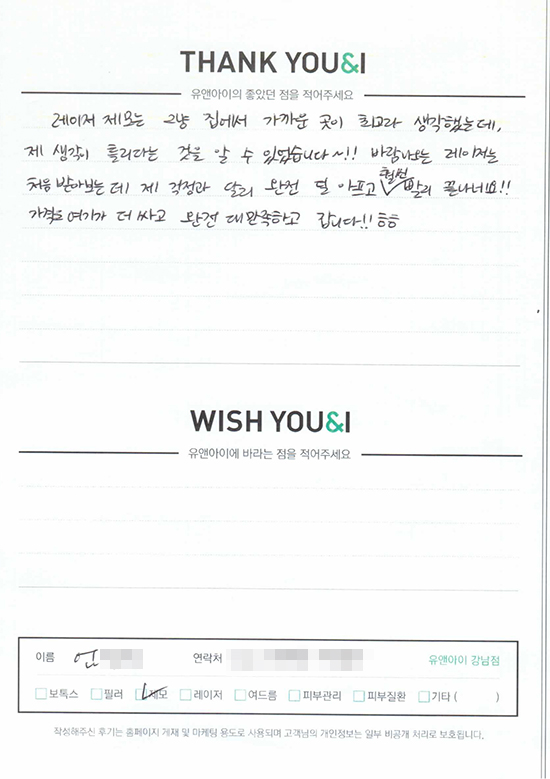 THANK YOU&I
유앤아이의 좋았던 점을 적어주세요
레이저 제모는 그냥 집에서 가까운 곳이 최고라 생각했는데,
제 생각이 틀리다는 것을 알 수 있었습니다~!! 바람나오는 레이저는
처음 받아보는데 제 걱정과 달리 완전 덜 아프고 훨씬 빨리 끝나네요!!
가격도 여기가 더 싸고 완전 대만족하고 갑니다!! ㅎㅎ
WISH YOU&I
유앤아이에 바라는 점을 적어주세요
이름 연 연락처 유앤아이 강남점
보톡스 필러 제모 레이저 여드름 피부관리 피부질환 기타 ( )
작성해주신 후기는 홈페이지 게재 및 마케팅 용도로 사용되며 고객님의 개인정보는 일부 비공개 처리로 보호됩니다.